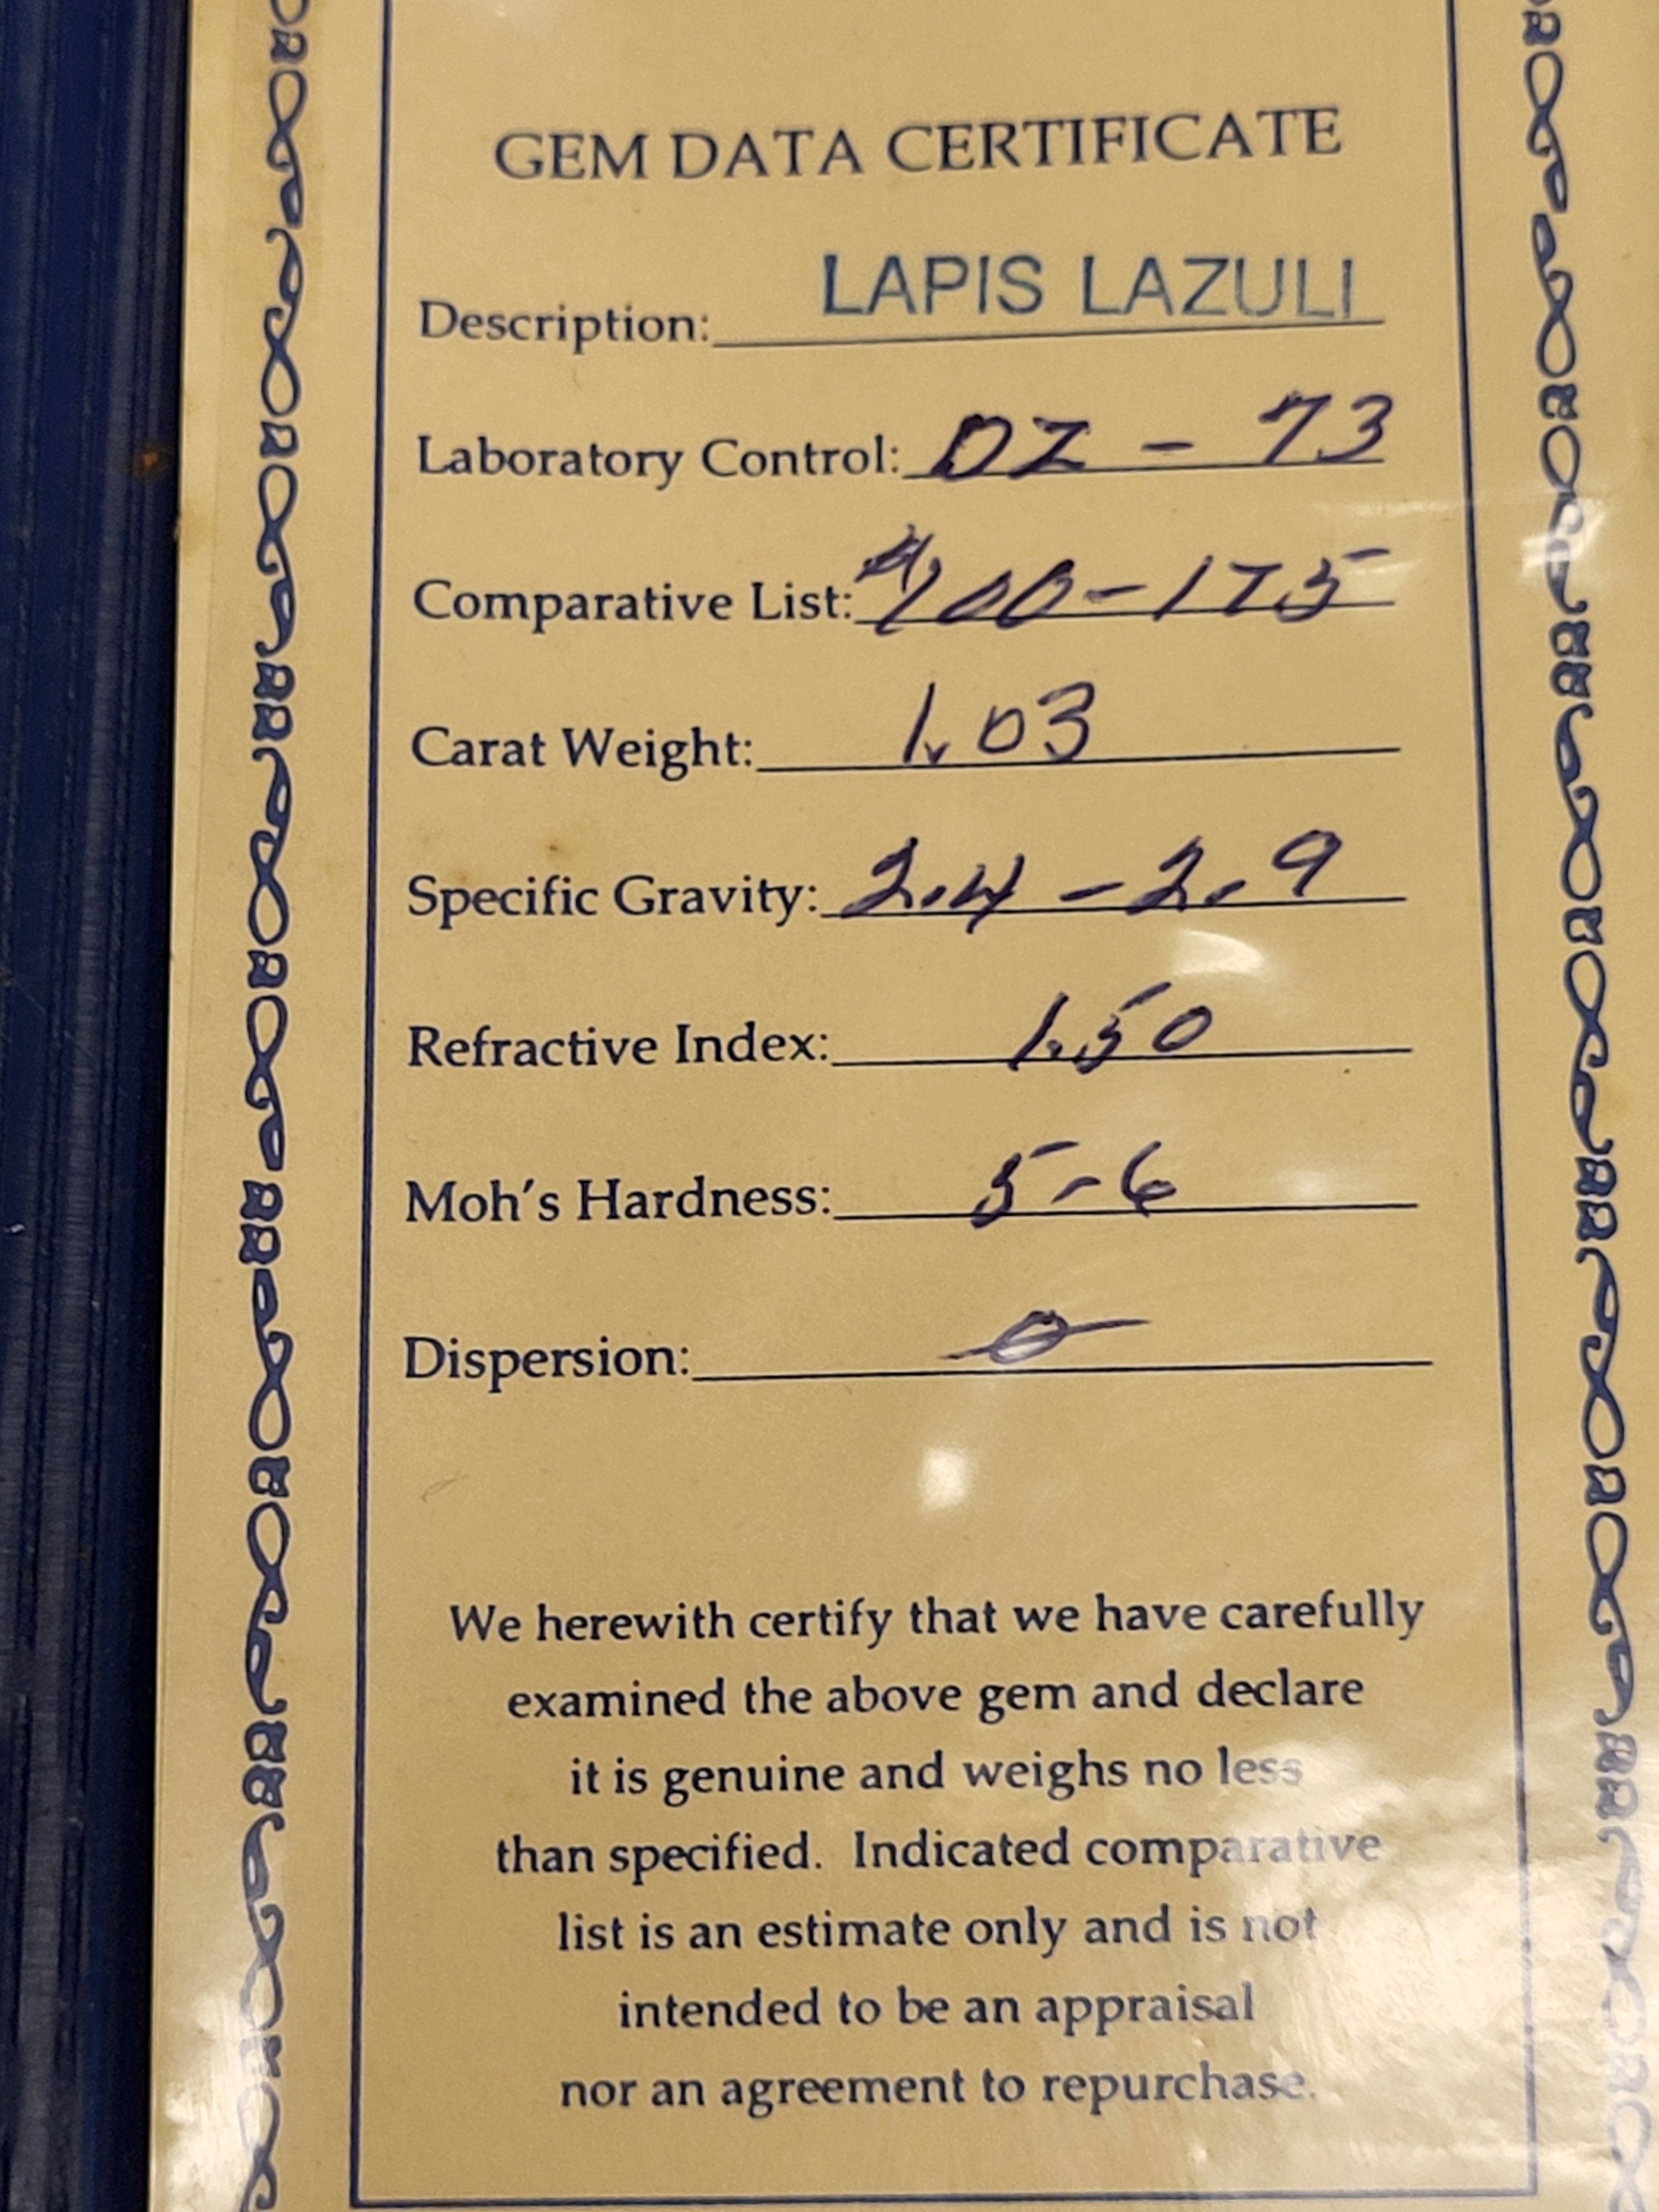 GEM DATA CERTIFICATE
Description: LAPIS LAZULI
Laboratory Control: DZ - 73
Comparative List: $100-175
Carat Weight: 1.03
Specific Gravity: 2.4 - 2.9
Refractive Index: 1.50
Moh's Hardness: 5-6
Dispersion:
We herewith certify that we have carefully
examined the above gem and declare
it is genuine and weighs no less
than specified. Indicated comparative
list is an estimate only and is not
intended to be an appraisal
nor an agreement to repurchase.